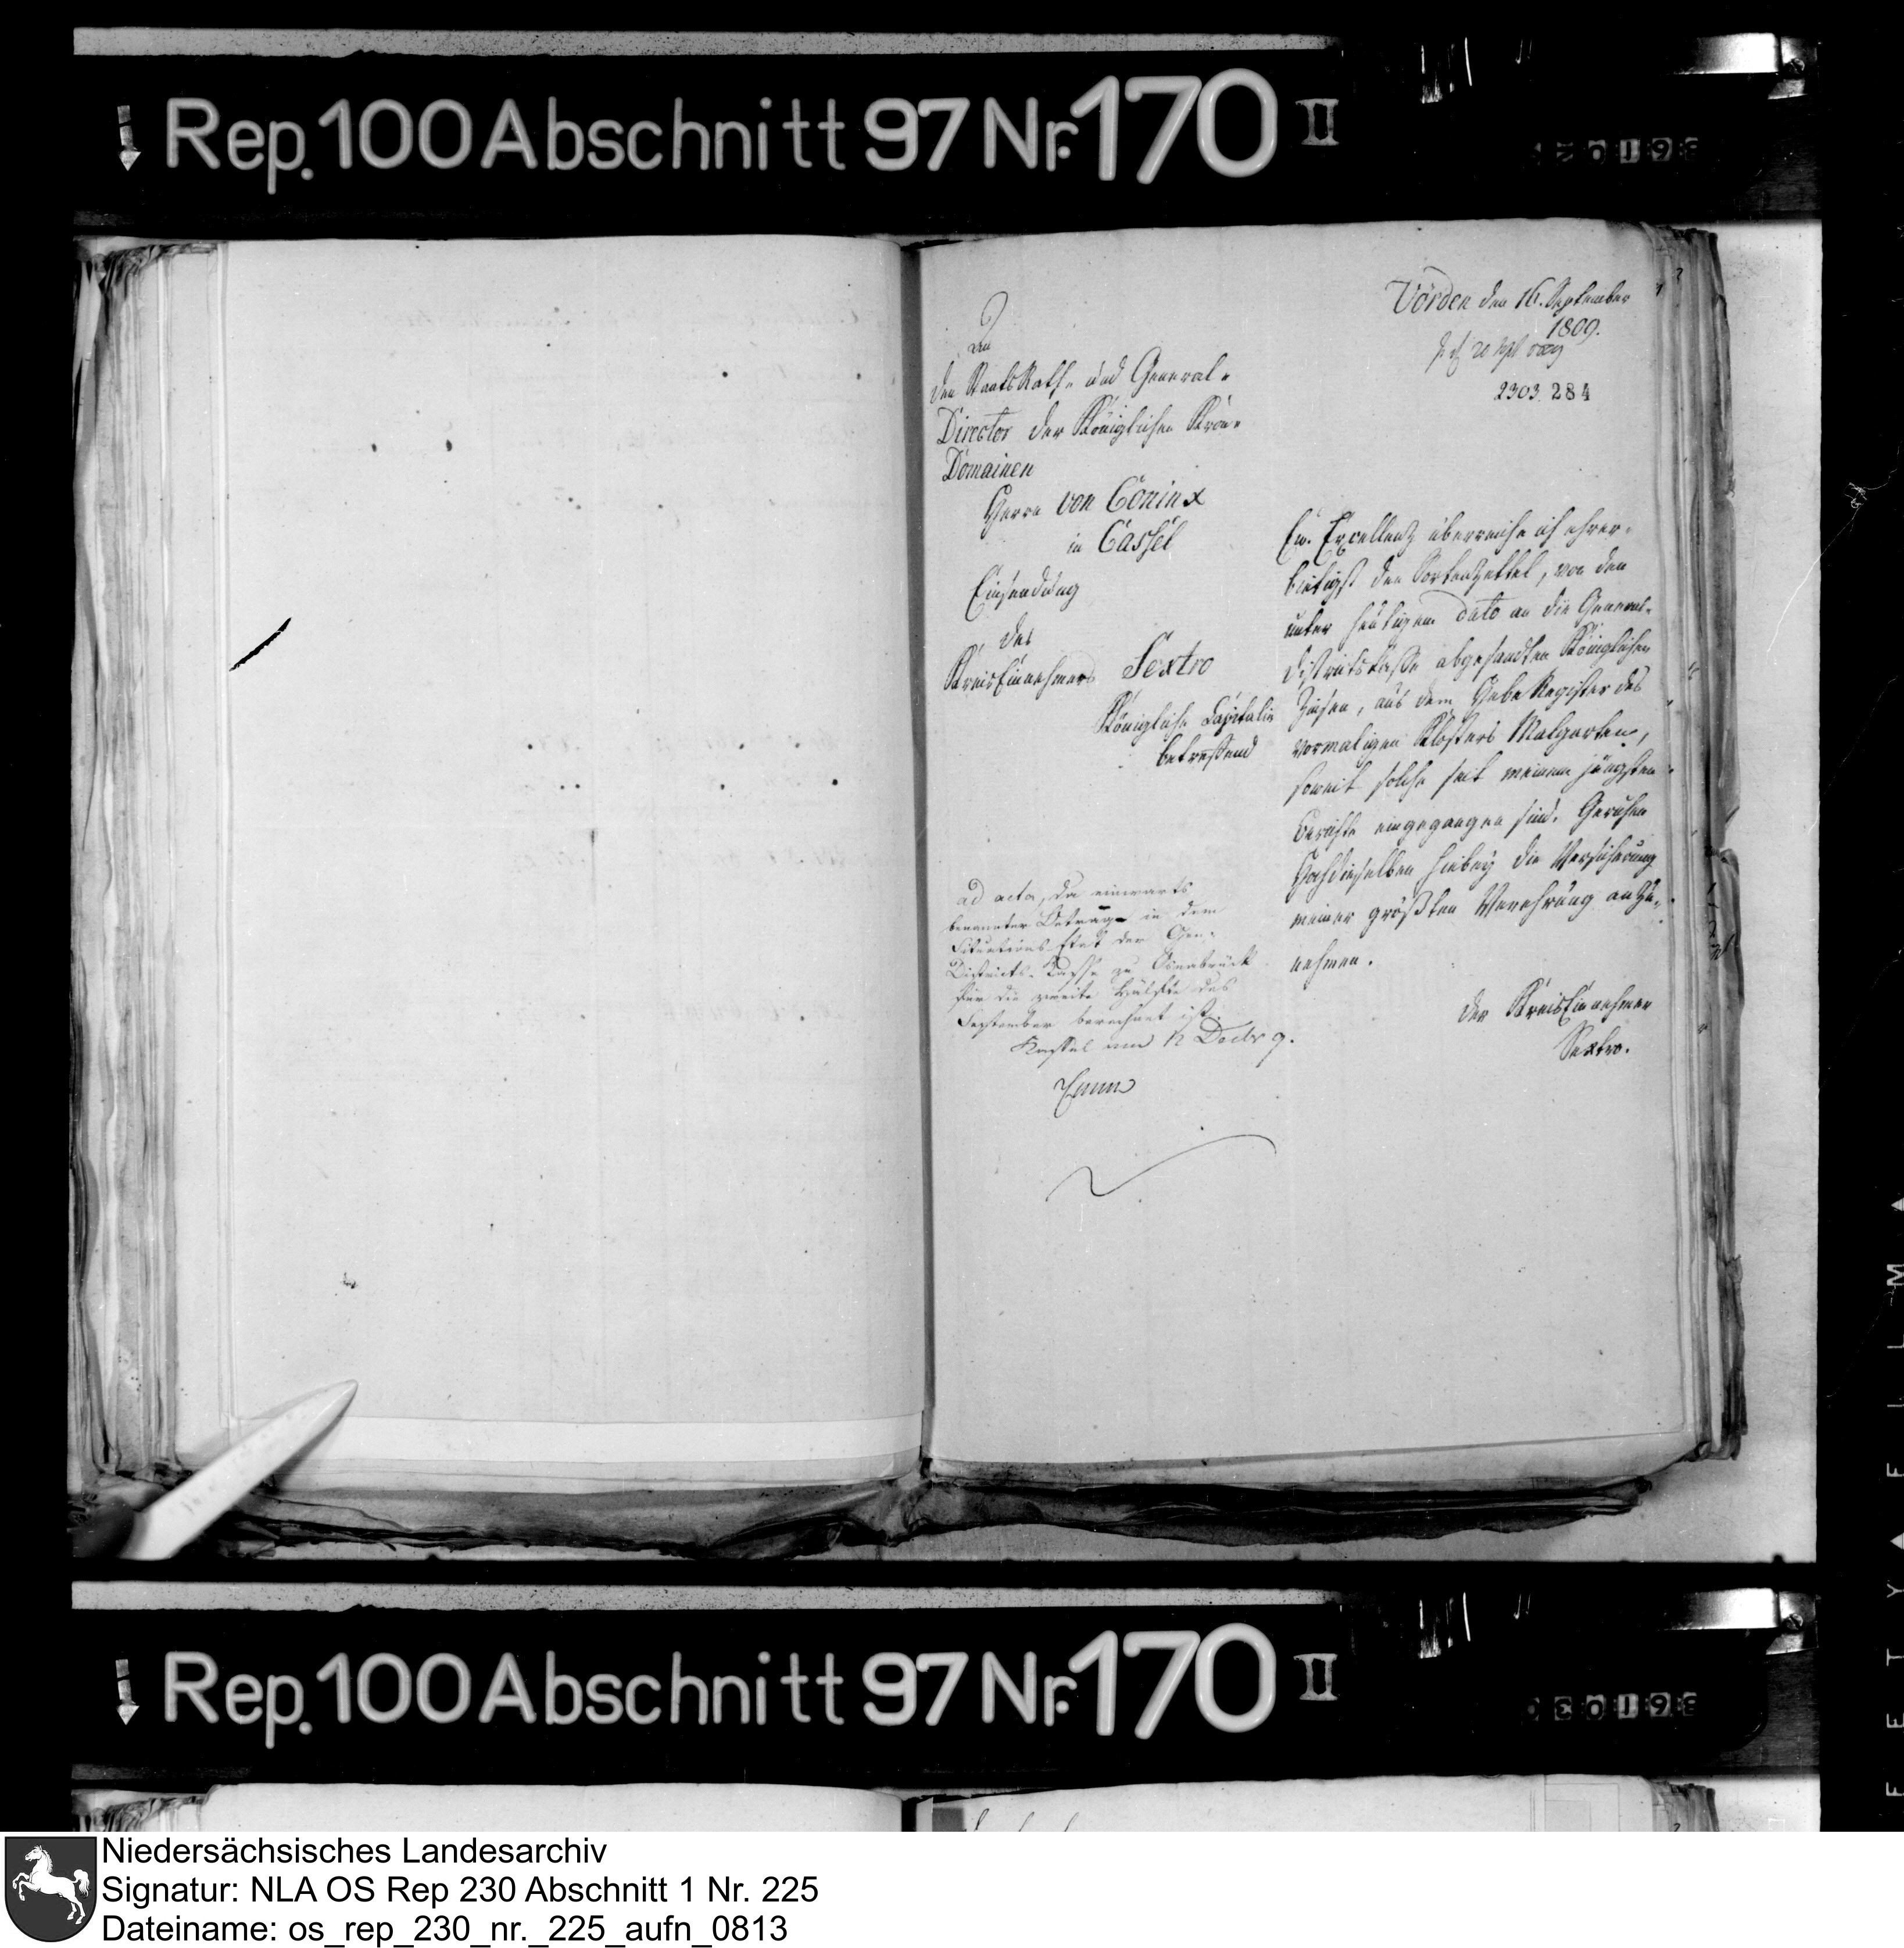 Rep. 100 Abschnitt 97 Nr. 170 II
Vörden den 16. September
1809.
2303. 284
An
den StaatsRath- und General-
Director der Königlichen Kron-
Domainen
Herrn von Coninx
in Cassel
Einsendung
des
KreisEinnehmers Sextro
Königliche Capitalien
betreffend
Ew. Excellenz überreiche ich ehrer-
bietigst den Sortenzettel, von den
unter heutigem dato an die General-
districtsKasse abgesandten Königlichen
Zinsen, aus dem HebeRegister des
vormaligen Klosters Malgarten,
soweit solche seit meinem jüngsten
Berichte eingegangen sind. Geruhen
Hochdieselben hiebey die Versicherung
meiner größten Verehrung anzu-
nehmen.
der KreisEinnehmer
Sextro.
ad acta, da einwarts
benannter Betrag in dem
Situations Etat der Gen.
Districts-Kasse zu Osnabrück
für die zweite Hälfte des
September berechnet ist.
Kassel am 12 Decbr 9.
Rep. 100 Abschnitt 97 Nr. 170 II
Niedersächsisches Landesarchiv
Signatur: NLA OS Rep 230 Abschnitt 1 Nr. 225
Dateiname: os_rep_230_nr._225_aufn_0813